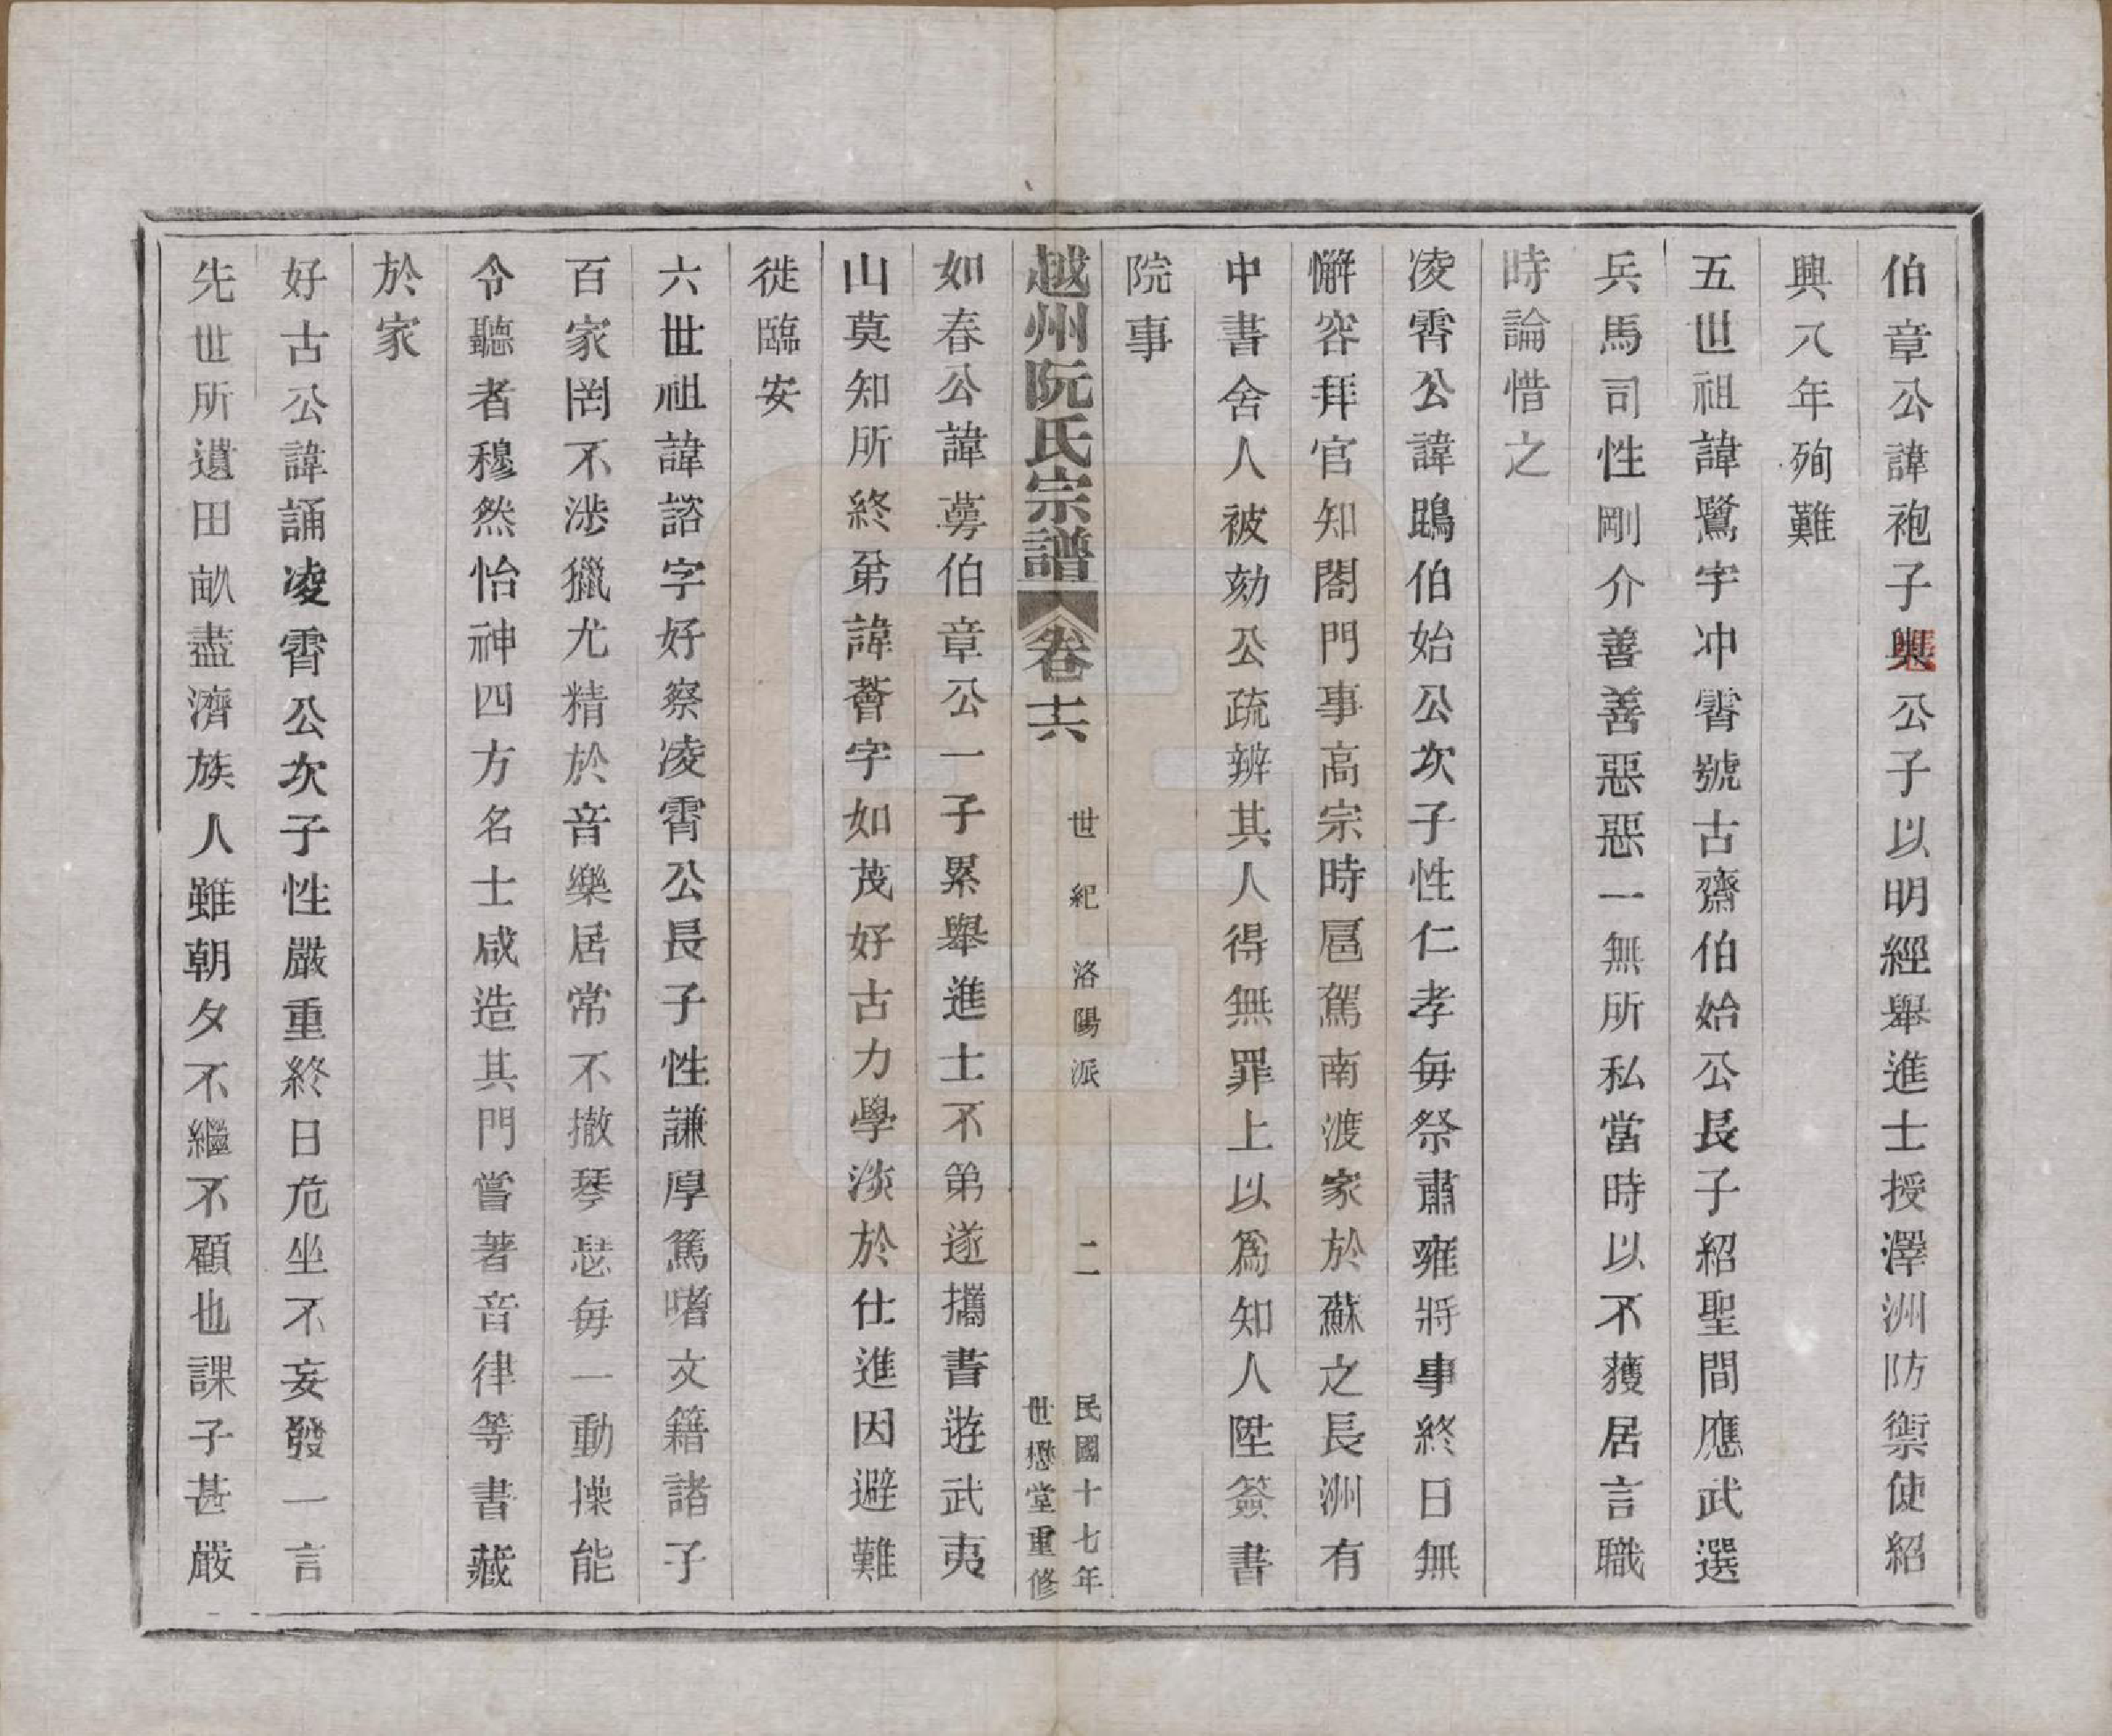 伯章公諱袍子輿公子以明經舉進士授澤洲防禦使紹
興八年殉難
五世祖諱鷺字冲霄號古齋伯始公長子紹聖間應武選
兵馬司性剛介善善惡惡一無所私當時以不獲居言職
時論惜之
凌霄公諱鵾伯始公次子性仁孝每祭肅雍將事終日無
懈容拜官知閤門事高宗時扈駕南渡家於蘇之長洲有
中書舍人被劾公疏辨其人得無罪上以爲知人陞簽書
院事
越州阮氏宗譜 卷十六 世紀 洛陽派 二 民國十七年
世懋堂重修
如春公諱蕚伯章公一子累舉進士不第遂攜書遊武夷
山莫知所終弟諱薈字如茂好古力學淡於仕進因避難
徙臨安
六世祖諱諮字好察凌霄公長子性謙厚篤嗜文籍諸子
百家罔不涉獵尤精於音樂居常不撤琴瑟每一動操能
令聽者穆然怡神四方名士咸造其門嘗著音律等書藏
於家
好古公諱誦凌霄公次子性嚴重終日危坐不妄發一言
先世所遺田畝盡濟族人雖朝夕不繼不顧也課子甚嚴